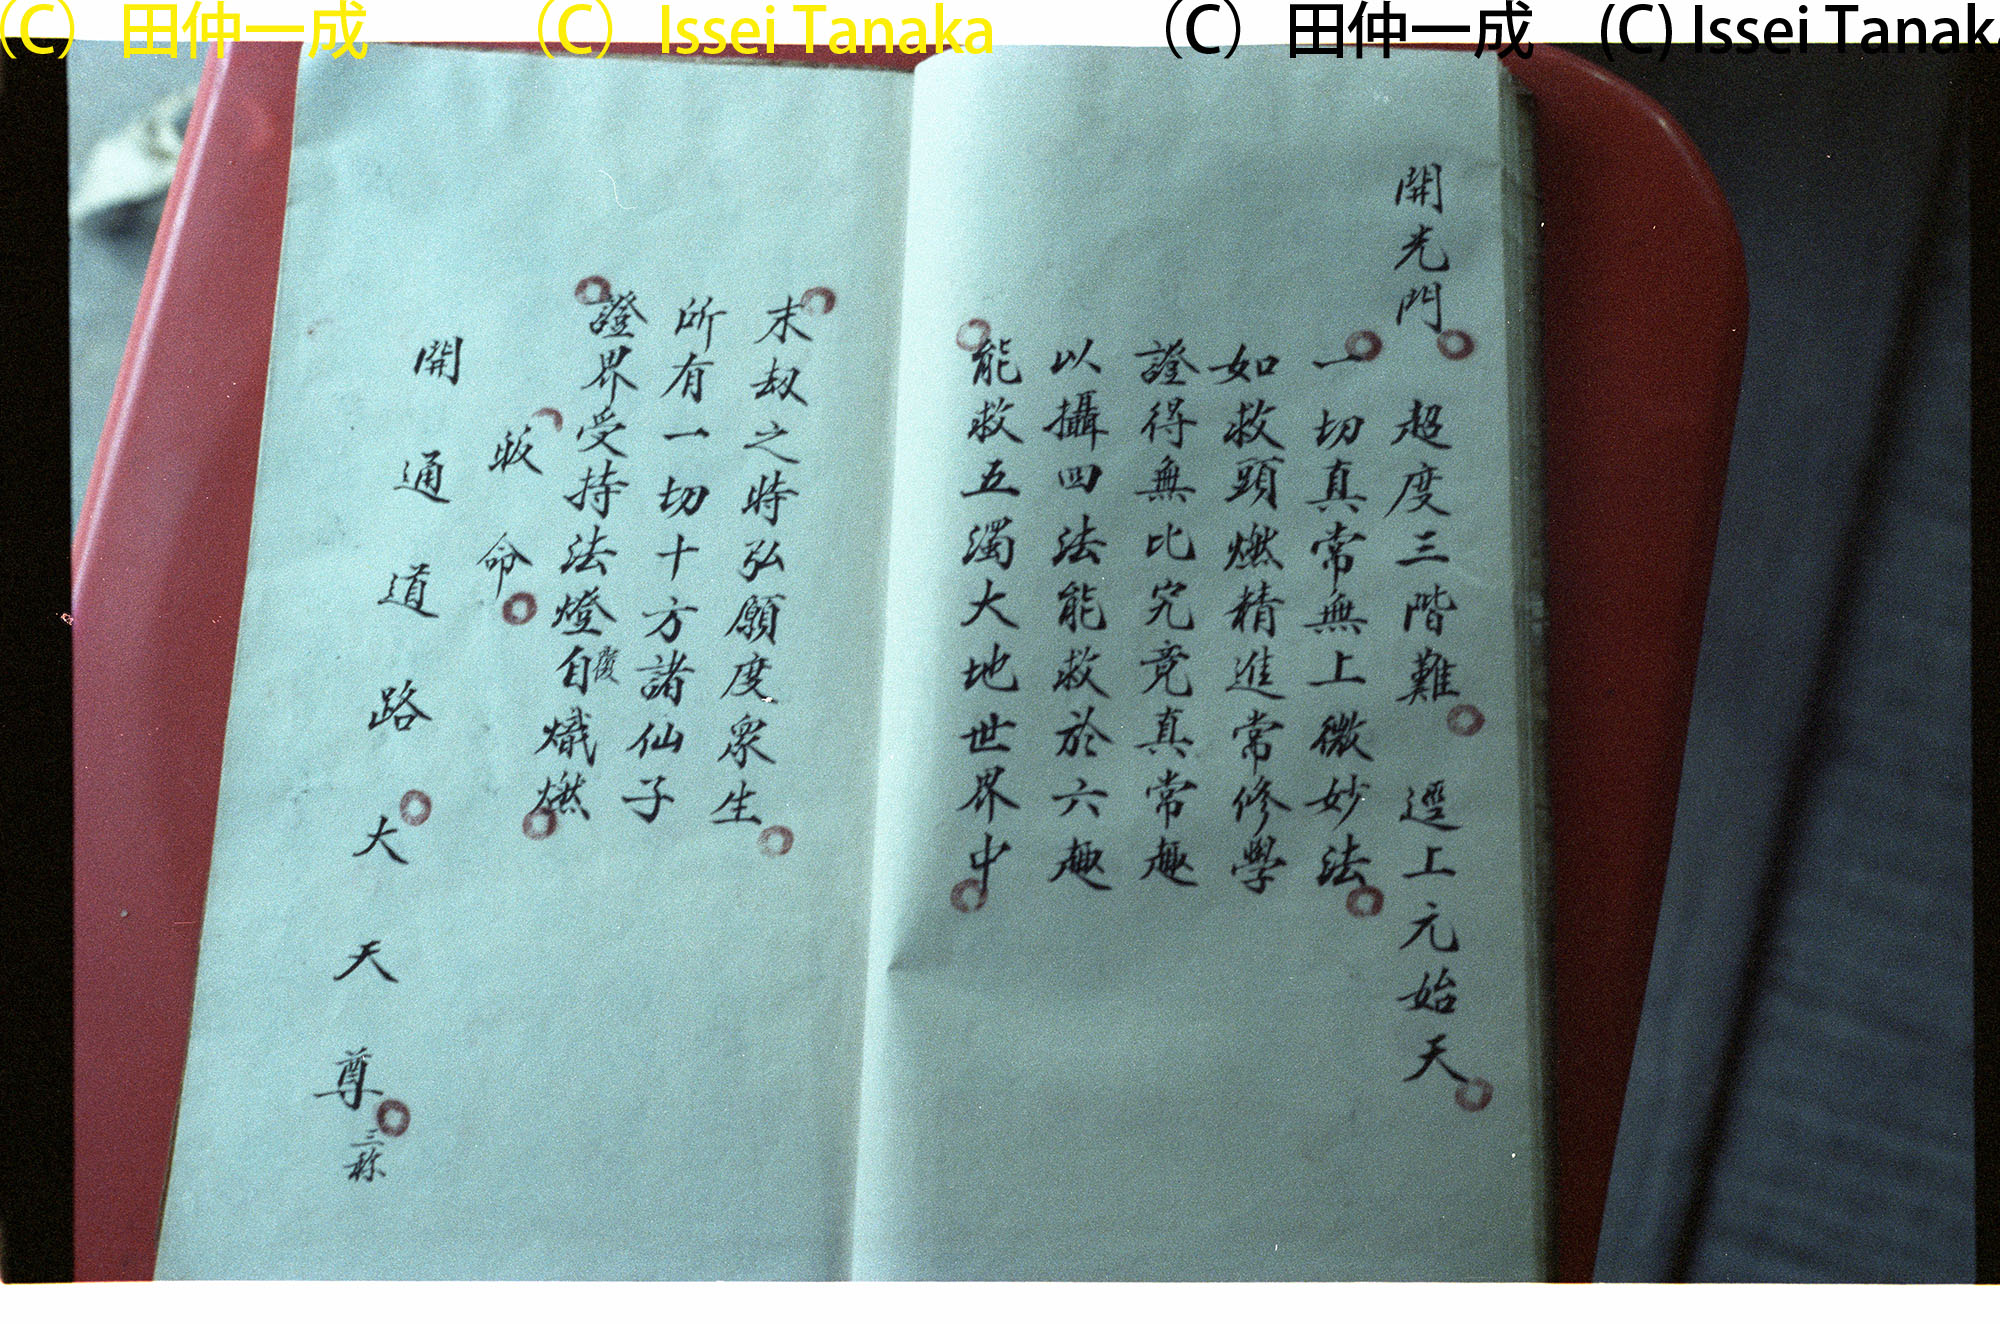 (C) 田仲一成 (C) Issei Tanaka (C) 田仲一成 (C) Issei Tanaka
開光門 超度三階難 逕上元始天
一切真常無上微妙法
如救頭燃精進常修學
證得無比究竟真常趣
以攝四法能救於六趣
能救五濁大地世界中
末劫之時弘願度眾生
所有一切十方諸仙子
證界受持法燈自熾燃
復
皈命
開通道路大天尊
三称